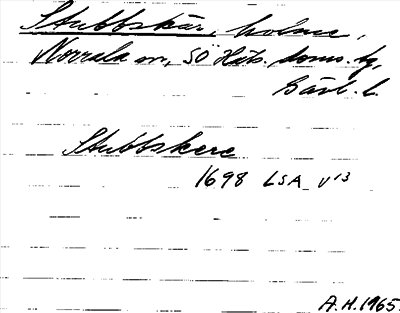 Stubbskär, holme,
Norrala sn, SÖ Häls. doms. tg,
Gävl. l.
Stubbskere
1698 LSA V 13
A.H. 1965.